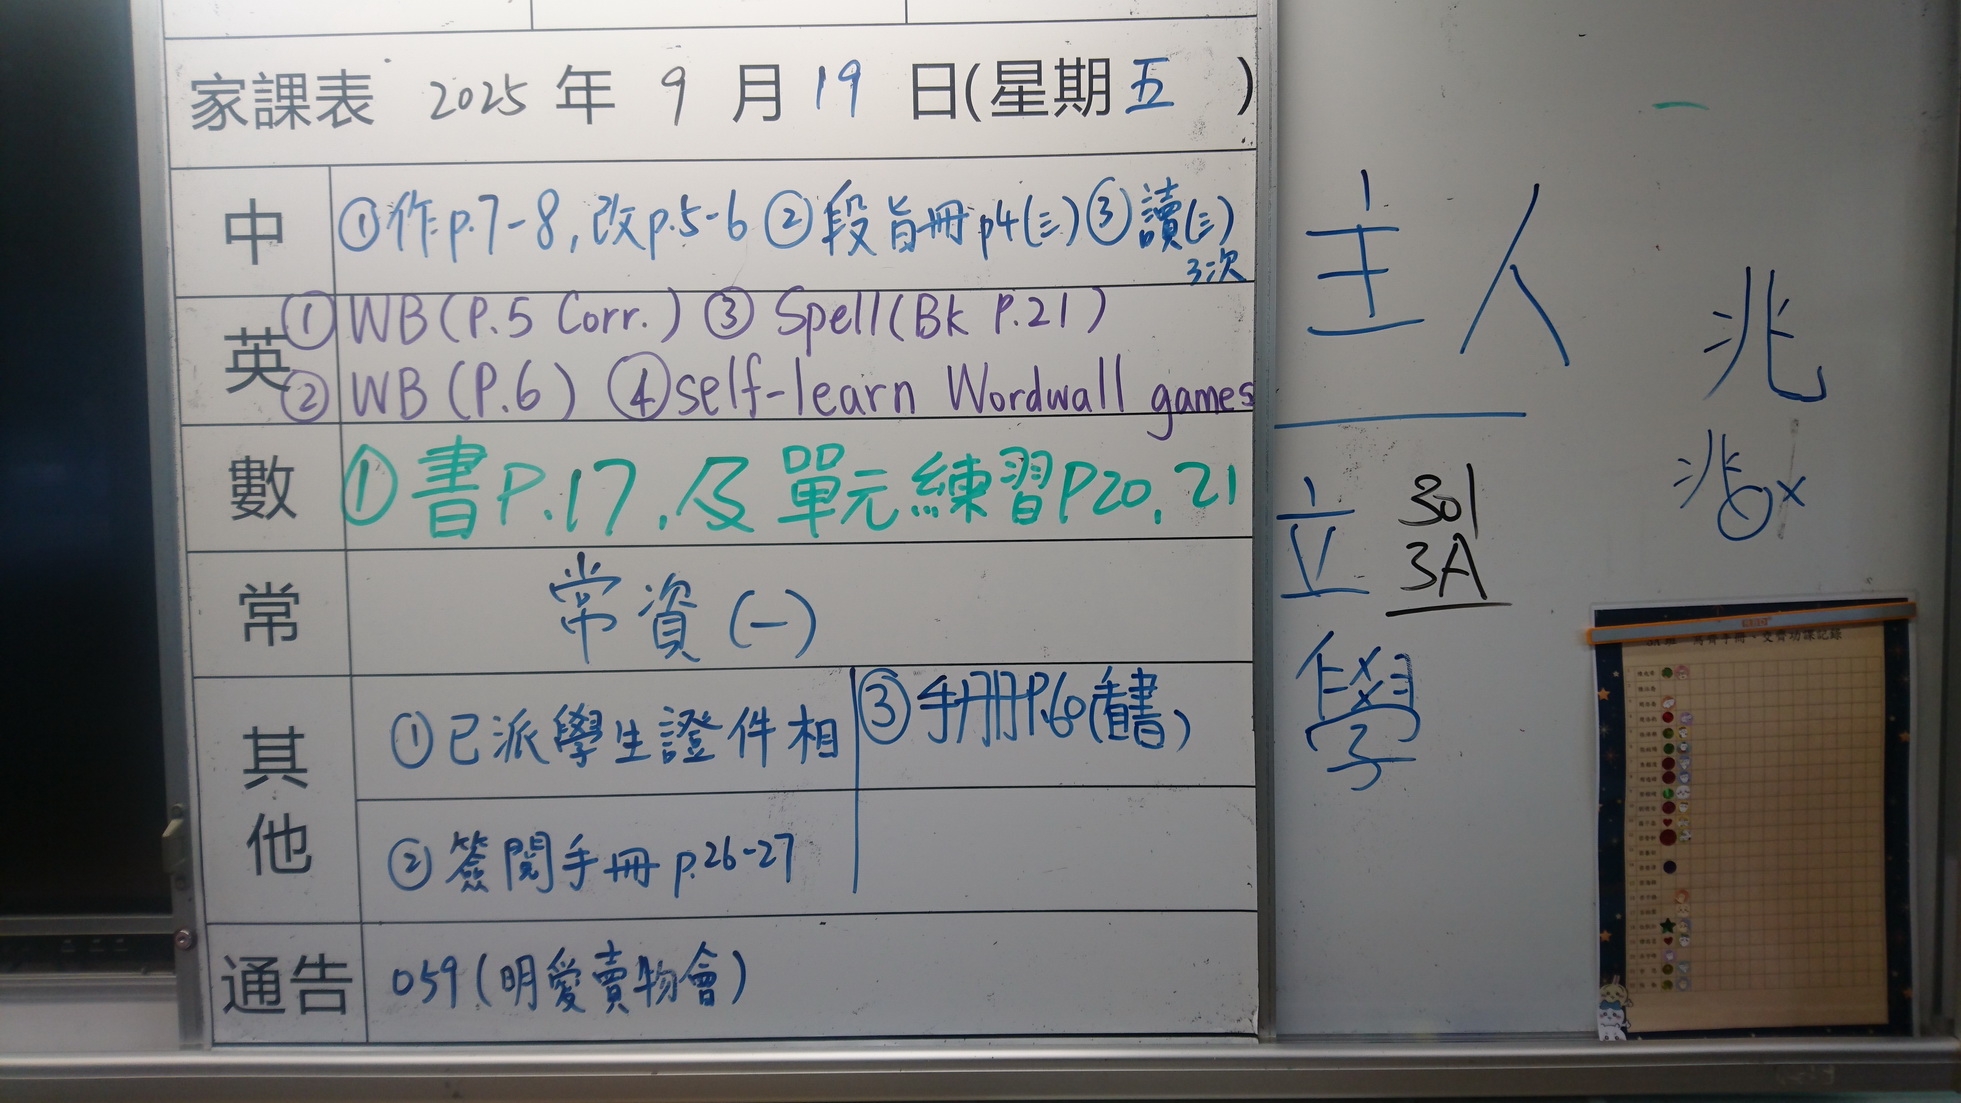 家課表 2025 年 9 月 19 日(星期五 )
中 ①作p.7-8,改p.5-6 ②段旨冊p4(三) ③讀(三)
3次
英 ① WB(P.5 Corr.) ③ Spell(Bk P.21)
② WB (P.6) ④self-learn Wordwall games
數 ①書P.17,及單元練習P20,21
常 常資(一)
其他 ①已派學生證件相 ③手冊P.60(看書)
②簽閱手冊p.26-27
通告 059(明愛賣物會)
主人
立 301
3A
學
兆
兆 x